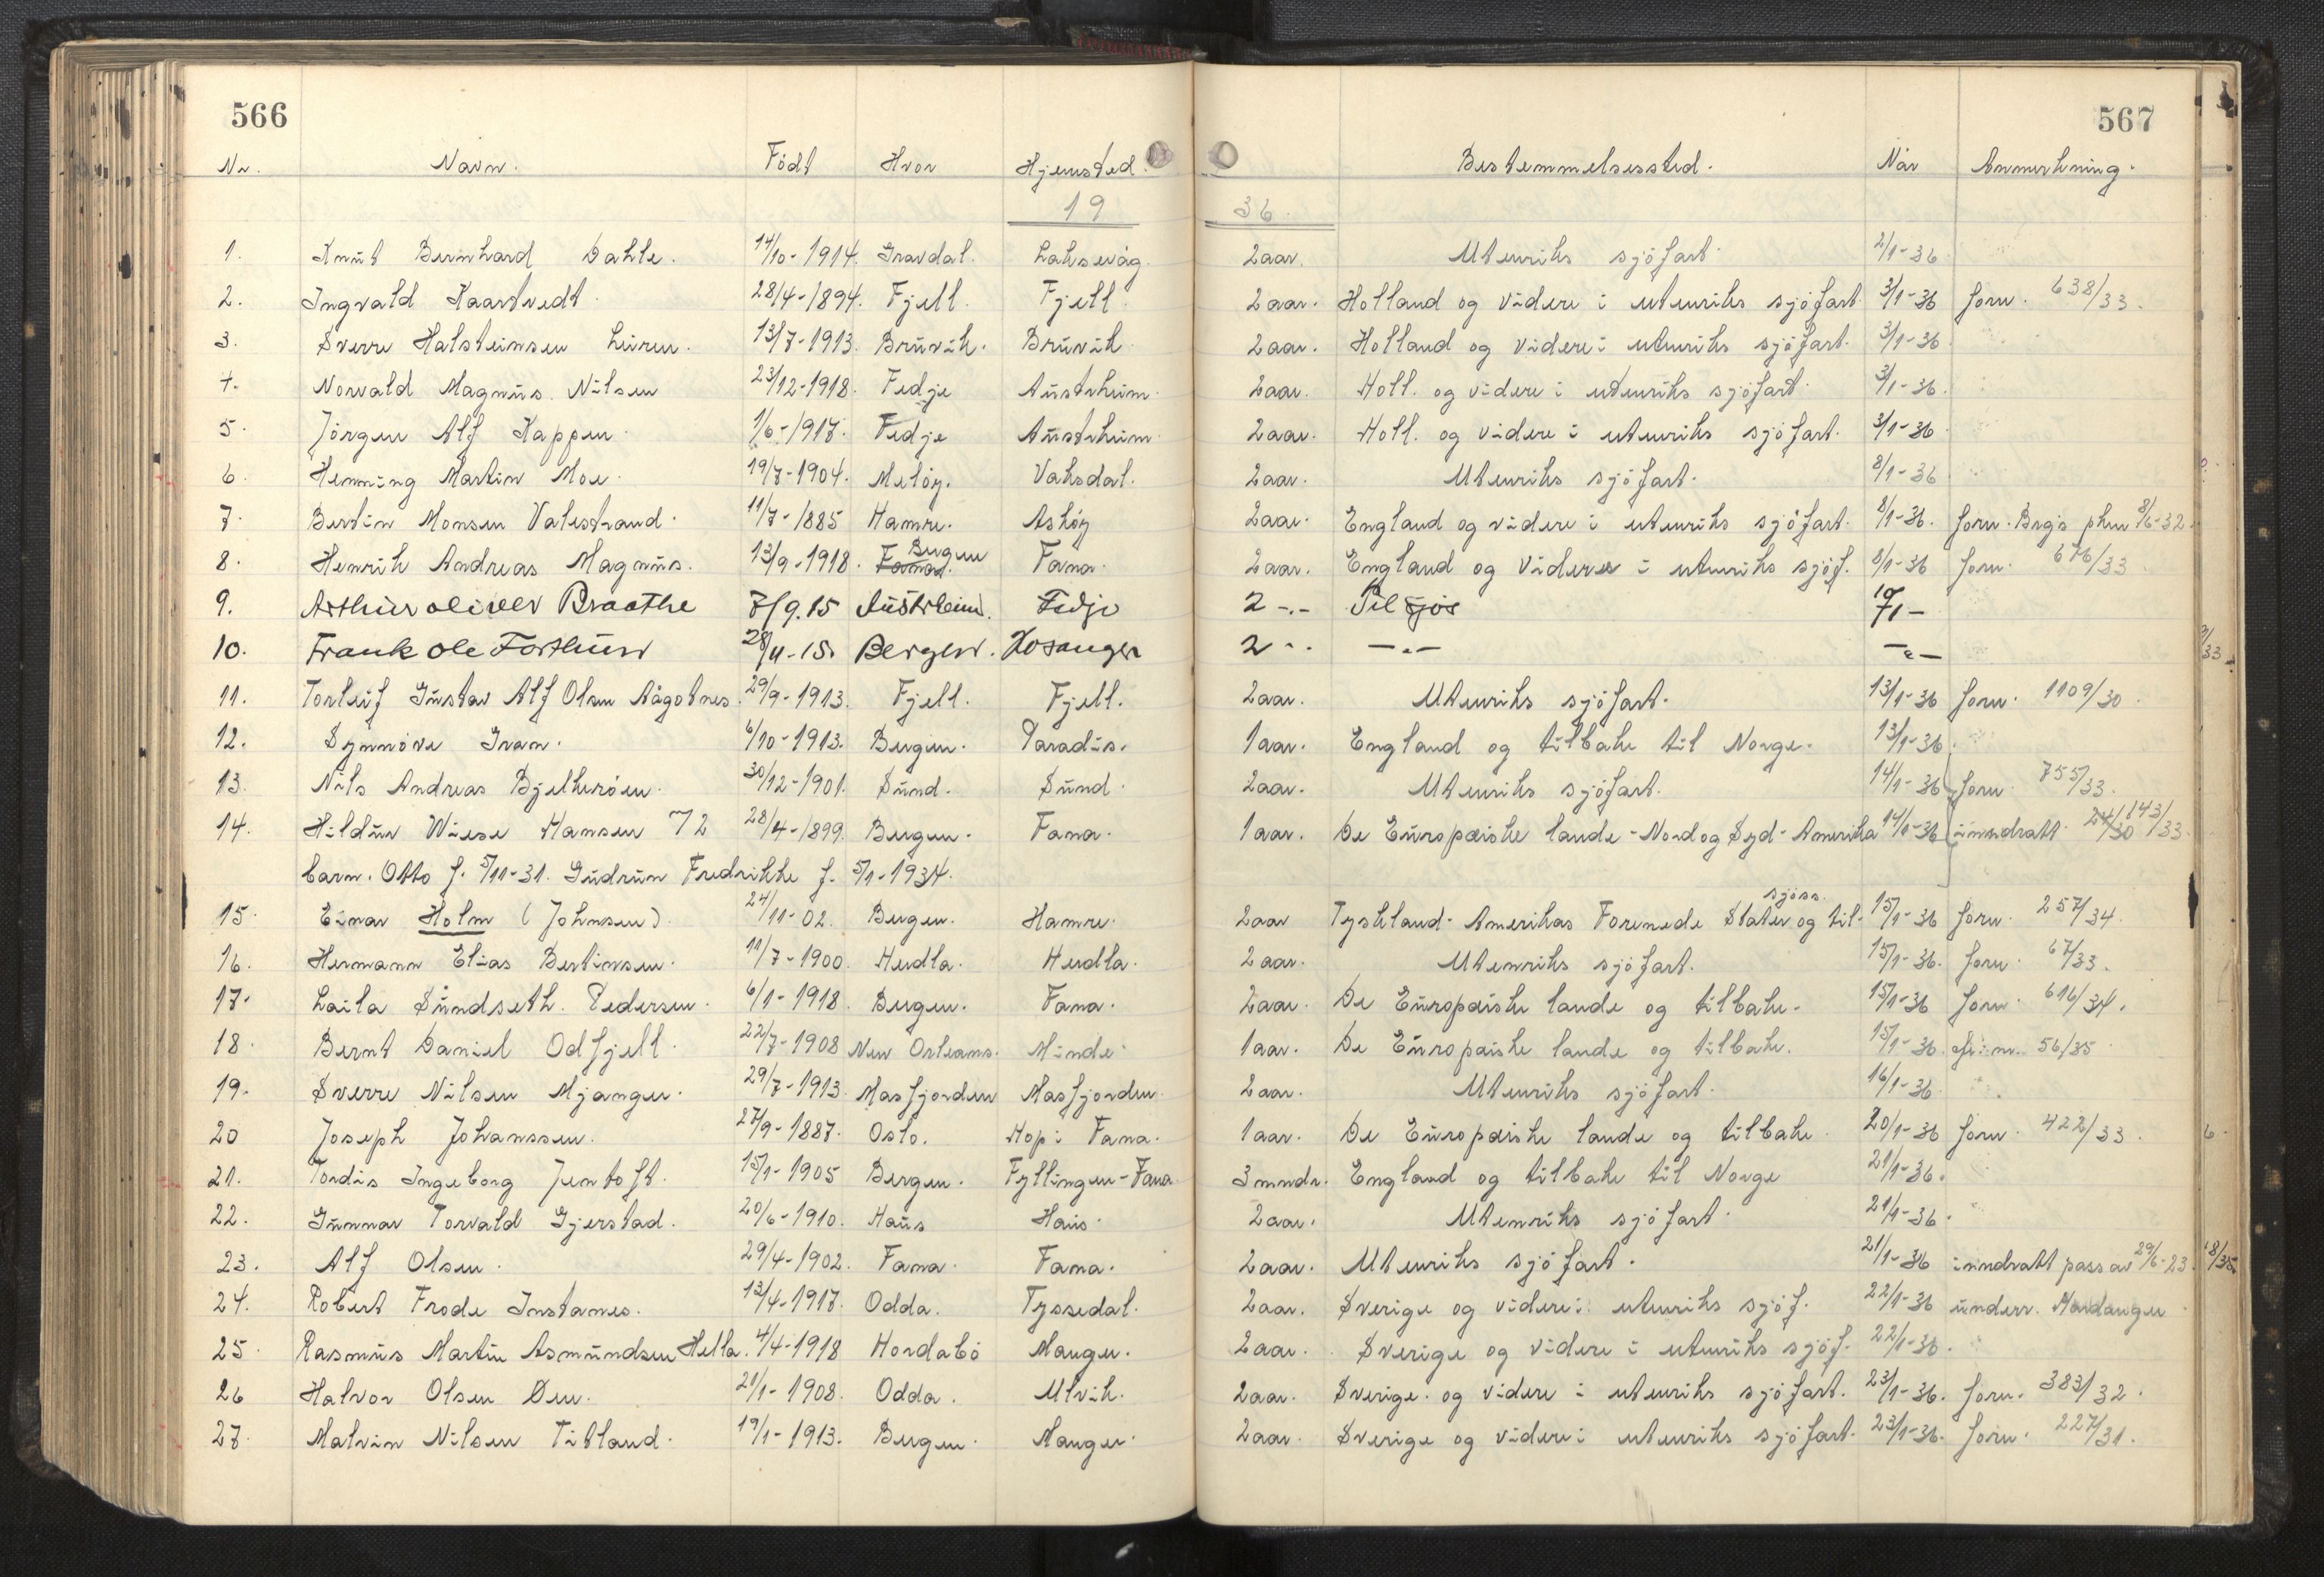 566
567
Nr. Navn. Født Hvor Hjemsted. Bestemmelsessted. Når Anmerkning.
19 36.
1. Knut Bernhard Dahle. 14/10-1914. Gravdal. Laksevåg. 2aar. Utenriks sjöfart. 2/1-36
2. Ingvald Kaartvedt. 28/4-1894. Fjell. Fjell. 2aar. Holland og videre i utenriks sjöfart. 3/1-36 forn. 638/33.
3. Sverre Halsteinsen Leiren. 13/7-1913. Bruvik. Bruvik 2aar. Holland og videre i utenriks sjöfart. 3/1-36
4. Norvald Magnus Nilsen 23/12-1918. Fedje Austrheim 2aar. Holl. og videre i utenriks sjöfart. 3/1-36.
5. Jörgen Alf Kappen. 1/6-1917. Fedje Austrheim 2aar. Holl. og videre i utenriks sjöfart. 3/1-36
6. Henning Martin Moe. 19/7-1904. Melöy. Vaksdal. 2aar. Utenriks sjöfart. 8/1-36
7. Bertin Monsen Valestrand. 11/7-1885 Hamre. Askøy 2aar. England og videre i utenriks sjöfart. 8/1-36. forn. Brgs pkm 8/6-32.
8. Henrik Andreas Magnus. 13/9-1918. Bergen Fana. 2aar. England og videre i utenriks sjöf. 8/1-36 forn. 676/33
9. Arthur oliver Braathe 7/9.15 Austrheim. Fedje 2 -.- Til sjøs 10/1-
10. Frank Ole Forthun 28/4-15. Bergen. Hosanger 2 -.- -"- -"-
11. Torleif Gustav Alf Olsen Ågotnes. 29/9-1913. Fjell. Fjell. 2aar. Utenriks sjöfart. 13/1-36 forn. 1109/30.
12. Synnöve Gran. 6/10-1913. Bergen. Paradis. 1aar. England og tilbake til Norge. 13/1-36.
13. Nils Andreas Bjelkeröen. 30/12-1901. Sund. Sund. 2aar. Utenriks sjöfart. 14/1-36 forn. 755/33.
14. Hildur Wiese Hansen 72 28/4-1899. Bergen. Fana. 1aar. De Europæiske lande - Nord og Syd - Amerika 14/1-36 inndratt 24/30 143/33.
barn. Otto f. 5/11-31. Gudrun Fredrikke f. 5/1-1934.
15. Einar Holm (Johnsen) 24/11-02. Bergen. Hamre. 2aar Tyskland - Amerikas Forenede Stater og til- sjøss. 15/1-36 forn. 257/34.
16. Hermann Elias Bertinsen. 11/7-1900. Herdla. Herdla. 2aar. Utenriks sjöfart. 15/1-36. forn. 67/33.
17. Laila Sundseth Pedersen. 6/1-1918. Bergen. Fana. 2aar. De Europæiske lande og tilbake. 15/1-36 forn. 616/34.
18. Bernt Daniel Odfjell. 22/7-1908 New Orleans. Minde. 1aar. De Europæiske lande og tilbake. 15/1-36. 56/35
19. Sverre Nilsen Mjanger. 29/7-1913. Masfjorden Masfjorden. 2aar. Utenriks sjöfart. 16/1-36.
20 Joseph Johanssen. 27/9-1887. Oslo. Hop i Fana. 1aar. De Europæiske lande og tilbake. 20/1-36 forn. 422/33.
21. Tordis Ingeborg Jentoft. 15/1-1905 Bergen. Fyllingen-Fana 3mndr. England og tilbake til Norge 21/1-36.
22. Gunnar Torvald Gjerstad. 20/6-1910. Haus Haus. 2aar. Utenriks sjöfart. 21/1-36.
23. Alf Olsen. 29/4-1902. Fana. Fana. 2aar. Utenriks sjöfart. 21/1-36 inndratt pass av 29/6-23. 18/35
24. Robert Frode Instanes. 13/4-1917. Odda. Tyssedal. 2aar. Sverige og videre i utenriks sjöf. 22/1-36 underr. Hardanger
25. Rasmus Martin Asmundsen Hella. 4/4-1918 Hordabö Manger. 2aar. Sverige og videre i utenriks sjöf. 22/1-36.
26 Halvor Olsen Deu. 21/1-1908. Odda. Ulvik. 2aar. Sverige og videre i utenriks sjöfart. 23/1-36. forn. 383/32.
27. Malvin Nilsen Titland. 19/1-1913. Bergen. Manger. 2aar. Sverige og videre i utenriks sjöfart. 23/1-36. forn. 227/31.